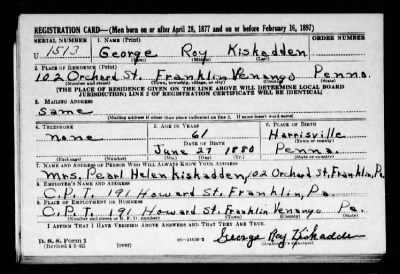 REGISTRATION CARD—(Men born on or after April 28, 1877 and on or before February 16, 1897)
SERIAL NUMBER 1. NAME (Print) ORDER NUMBER
U 1513 George Roy Kiskadden
(First) (Middle) (Last)
2. PLACE OF RESIDENCE (Print)
102 Orchard St. Franklin Venango Penna.
(Number and street) (Town, township, village, or city) (County) (State)
[THE PLACE OF RESIDENCE GIVEN ON THE LINE ABOVE WILL DETERMINE LOCAL BOARD
JURISDICTION; LINE 2 OF REGISTRATION CERTIFICATE WILL BE IDENTICAL]
3. MAILING ADDRESS
same
[Mailing address if other than place indicated on line 2. If same insert word same]
4. TELEPHONE 5. AGE IN YEARS 6. PLACE OF BIRTH
none 61 Harrisville
DATE OF BIRTH (Town or county)
June 27 1880 Penna.
(Exchange) (Number) (Mo.) (Day) (Yr.) (State or country)
7. NAME AND ADDRESS OF PERSON WHO WILL ALWAYS KNOW YOUR ADDRESS
Mrs. Pearl Helen Kiskadden, 102 Orchard St. Franklin, Pa.
8. EMPLOYER'S NAME AND ADDRESS
C.P.T. 191 Howard St. Franklin, Pa.
9. PLACE OF EMPLOYMENT OR BUSINESS
C.P.T. 191 Howard St. Franklin Venango Pa.
(Number and street or R. F. D. number) (Town) (County) (State)
I AFFIRM THAT I HAVE VERIFIED ABOVE ANSWERS AND THAT THEY ARE TRUE.
D. S. S. Form 1
(Revised 4-1-42) (over)
George Roy Kiskadden